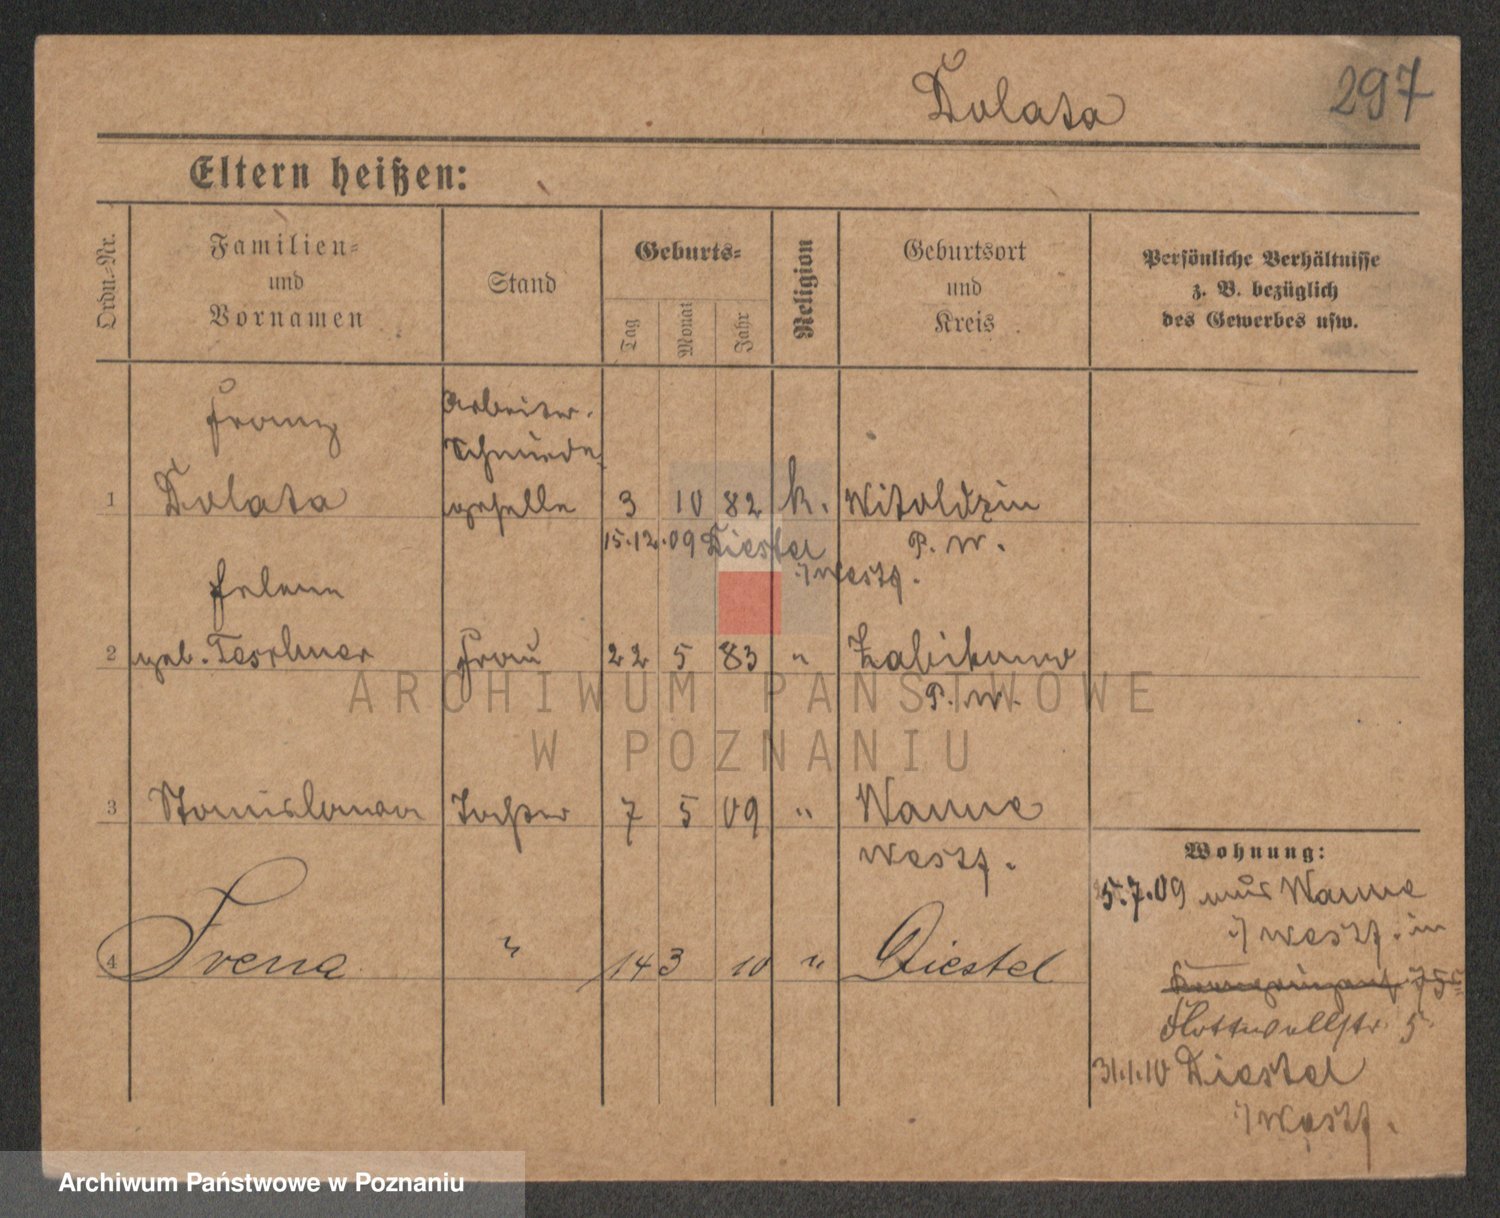 Dolata
297
Eltern heißen:
Ordn.-Nr.
Familien-
und
Vornamen
Stand
Geburts-
Tag
Monat
Jahr
Religion
Geburtsort
und
Kreis
Persönliche Verhältnisse
z. B. bezüglich
des Gewerbes usw.
Franz
Arbeiter.
Schmiede
1 Dolata geselle 3 10 82 k. Witoldzin
15.12.09 Diestel P. W.
i/ Westf.
Helene
2 geb. Frau 22 5 83 " Zabikowo
P. W.
3 Stanislawa Tochter 7 5 09 " Wanne
Westf.
4 Irena " 14 3 10 " Diestel
Wohnung:
5.7.09 aus Wanne
i/ Westf. in
Hottwellstr. 5
31.1.10 Diestel
i/ Westf.
ARCHIWUM PAŃSTWOWE
W POZNANIU
Archiwum Państwowe w Poznaniu